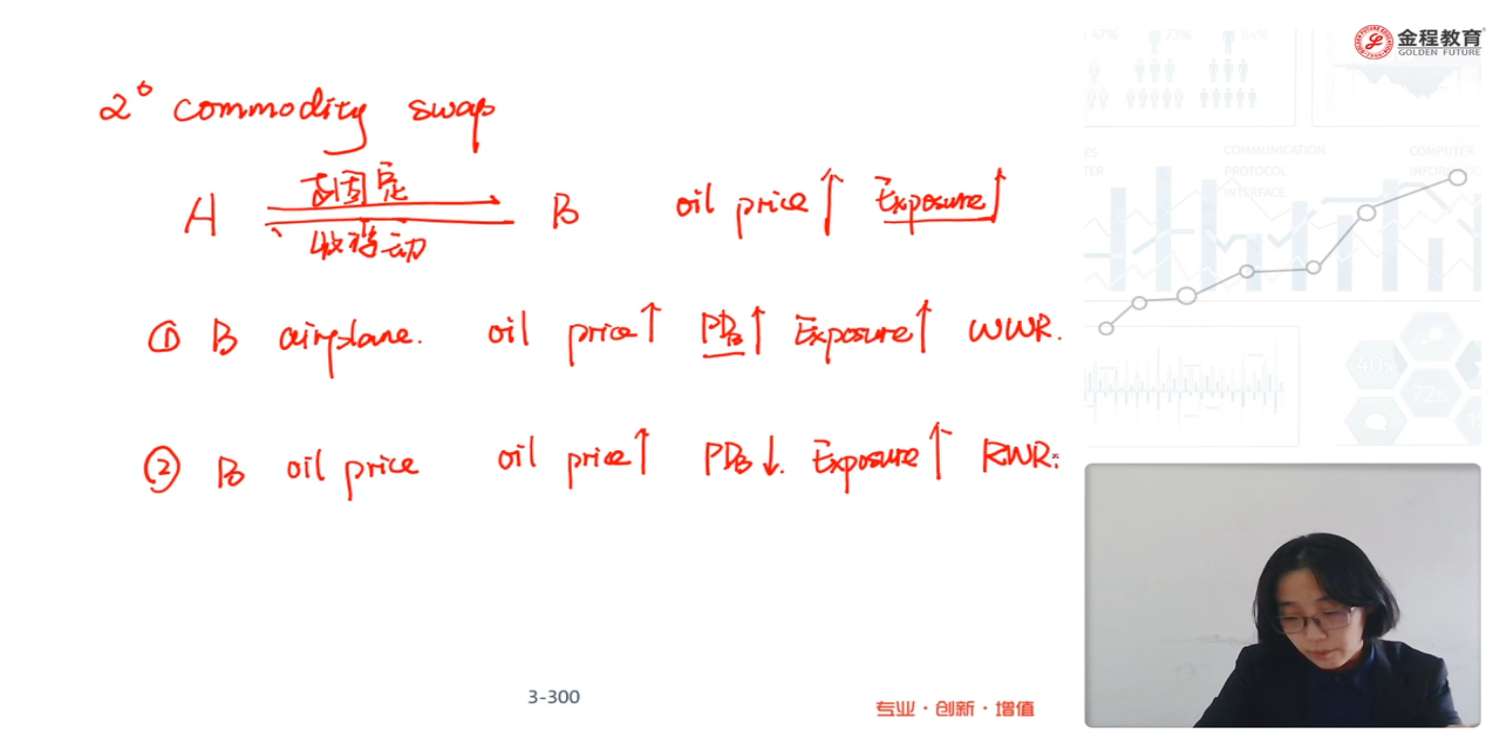 金程教育
GOLDEN FUTURE
2° commodity swap
支固定
A B oil price↑ Exposure↑
收浮动
① B airplane. oil price↑ PDB↑ Exposure↑ WWR.
② B oil price oil price↑ PDB↓. Exposure↑ RWR.
COMMUNICATION
PROTOCOL
INTERFACE
COMPUTER
40%
72%
3-300
专业·创新·增值